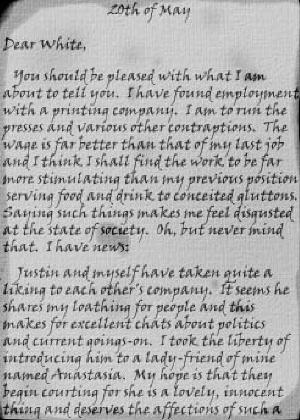 20th of May
Dear White,
You should be pleased with what I am
about to tell you. I have found employment
with a printing company. I am to run the
presses and various other contraptions. The
wage is far better than that of my last job
and I think I shall find the work to be far
more stimulating than my previous position
serving food and drink to conceited gluttons.
Saying such things makes me feel disgusted
at the state of society. Oh, but never mind
that. I have news:
Justin and myself have taken quite a
liking to each other's company. It seems he
shares my loathing for people and this
makes for excellent chats about politics
and current goings-on. I took the liberty of
introducing him to a lady-friend of mine
named Anastasia. My hope is that they
begin courting for she is a lovely, innocent
thing and deserves the affections of such a